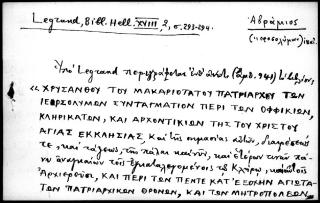 Legrand, Bibl. Hell. XVIII, 2, σ. 293-294.
Ἀδράμιος
Ὑπὸ Legrand περιγράφεται
«ΧΡΥΣΑΝΘΟΥ ΤΟΥ ΜΑΚΑΡΙΩΤΑΤΟΥ ΠΑΤΡΙΑΡΧΟΥ ΤΩΝ
ΙΕΡΟΣΟΛΥΜΩΝ ΣΥΝΤΑΓΜΑΤΙΟΝ ΠΕΡΙ ΤΩΝ ΟΦΦΙΚΙΩΝ,
ΚΛΗΡΙΚΑΤΩΝ, ΚΑΙ ΑΡΧΟΝΤΙΚΙΩΝ ΤΗΣ ΤΟΥ ΧΡΙΣΤΟΥ
ΑΓΙΑΣ ΕΚΚΛΗΣΙΑΣ, καὶ τῆς σημασίας αὐτῶν, διαιρέσεώς
τε, καὶ τάξεως, τῆς πάλαι καὶ νῦν, καὶ ἑτέρων τινῶν πάνυ
ἀναγκαίων τοῖς ἐγκαταλεγομένοις τῷ Κλήρῳ, καὶ αὐτοῖς
Ἀρχιερεῦσι, ΚΑΙ ΠΕΡΙ ΤΩΝ ΠΕΝΤΕ ΚΑΤ' ΕΞΟΧΗΝ ΑΓΙΩΤΑ-
ΤΩΝ ΠΑΤΡΙΑΡΧΙΚΩΝ ΘΡΟΝΩΝ, ΚΑΙ ΤΩΝ ΜΗΤΡΟΠΟΛΕΩΝ,